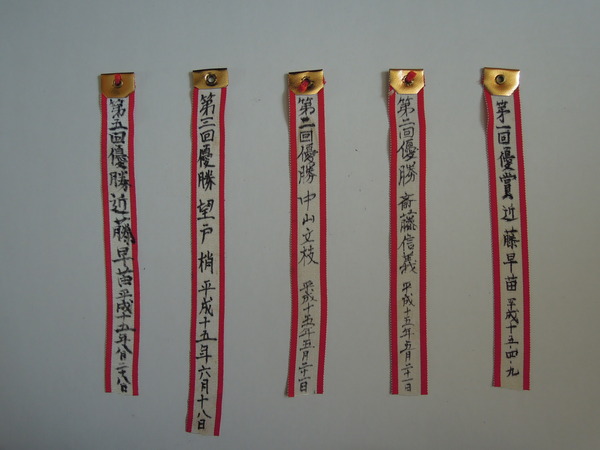 第一回優賞 近藤早苗 平成十五・四・九
第二回優勝 斎藤信義 平成十五年五月二十一日
第二回優勝 中山文枝 平成十五年五月二十一日
第三回優勝 望戸梢 平成十五年六月十八日
第五回優勝 近藤早苗 平成十五年八月二十八日